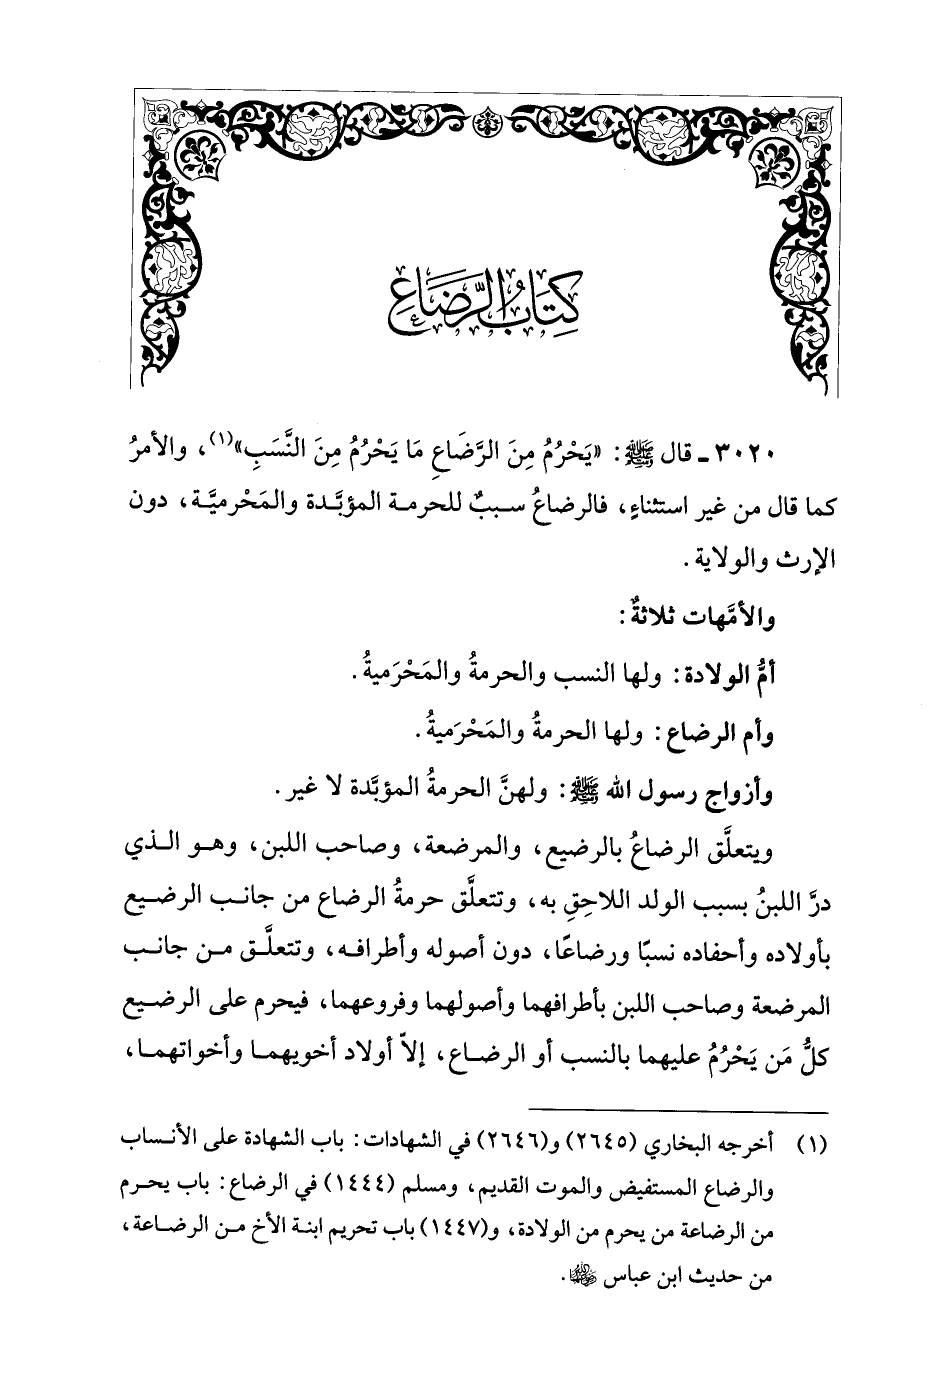 كِتَابُ الرَّضَاعِ
٣٠٢٠ ـ قال ﷺ: «يَحْرُمُ مِنَ الرَّضَاعِ مَا يَحْرُمُ مِنَ النَّسَبِ»(١)، والأمرُ
كما قال من غير استثناءٍ، فالرضاعُ سببٌ للحرمة المؤبَّدة والمَحْرميَّة، دون
الإرث والولاية.
والأمَّهات ثلاثةٌ:
أمُّ الولادة: ولها النسب والحرمةُ والمَحْرَميةُ.
وأم الرضاع: ولها الحرمةُ والمَحْرَميةُ.
وأزواج رسول الله ﷺ: ولهنَّ الحرمةُ المؤبَّدة لا غير.
ويتعلَّق الرضاعُ بالرضيع، والمرضعة، وصاحب اللبن، وهو الذي
درَّ اللبنُ بسبب الولد اللاحقِ به، وتتعلَّق حرمةُ الرضاع من جانب الرضيع
بأولاده وأحفاده نسبًا ورضاعًا، دون أصوله وأطرافه، وتتعلَّق من جانب
المرضعة وصاحب اللبن بأطرافهما وأصولهما وفروعهما، فيحرم على الرضيع
كلُّ مَن يَحْرُمُ عليهما بالنسب أو الرضاع، إلاّ أولاد أخويهما وأخواتهما،
(١) أخرجه البخاري (٢٦٤٥) و(٢٦٤٦) في الشهادات: باب الشهادة على الأنساب
والرضاع المستفيض والموت القديم، ومسلم (١٤٤٤) في الرضاع: باب يحرم
من الرضاعة من يحرم من الولادة، و(١٤٤٧) باب تحريم ابنة الأخ من الرضاعة،
من حديث ابن عباس ﵄.